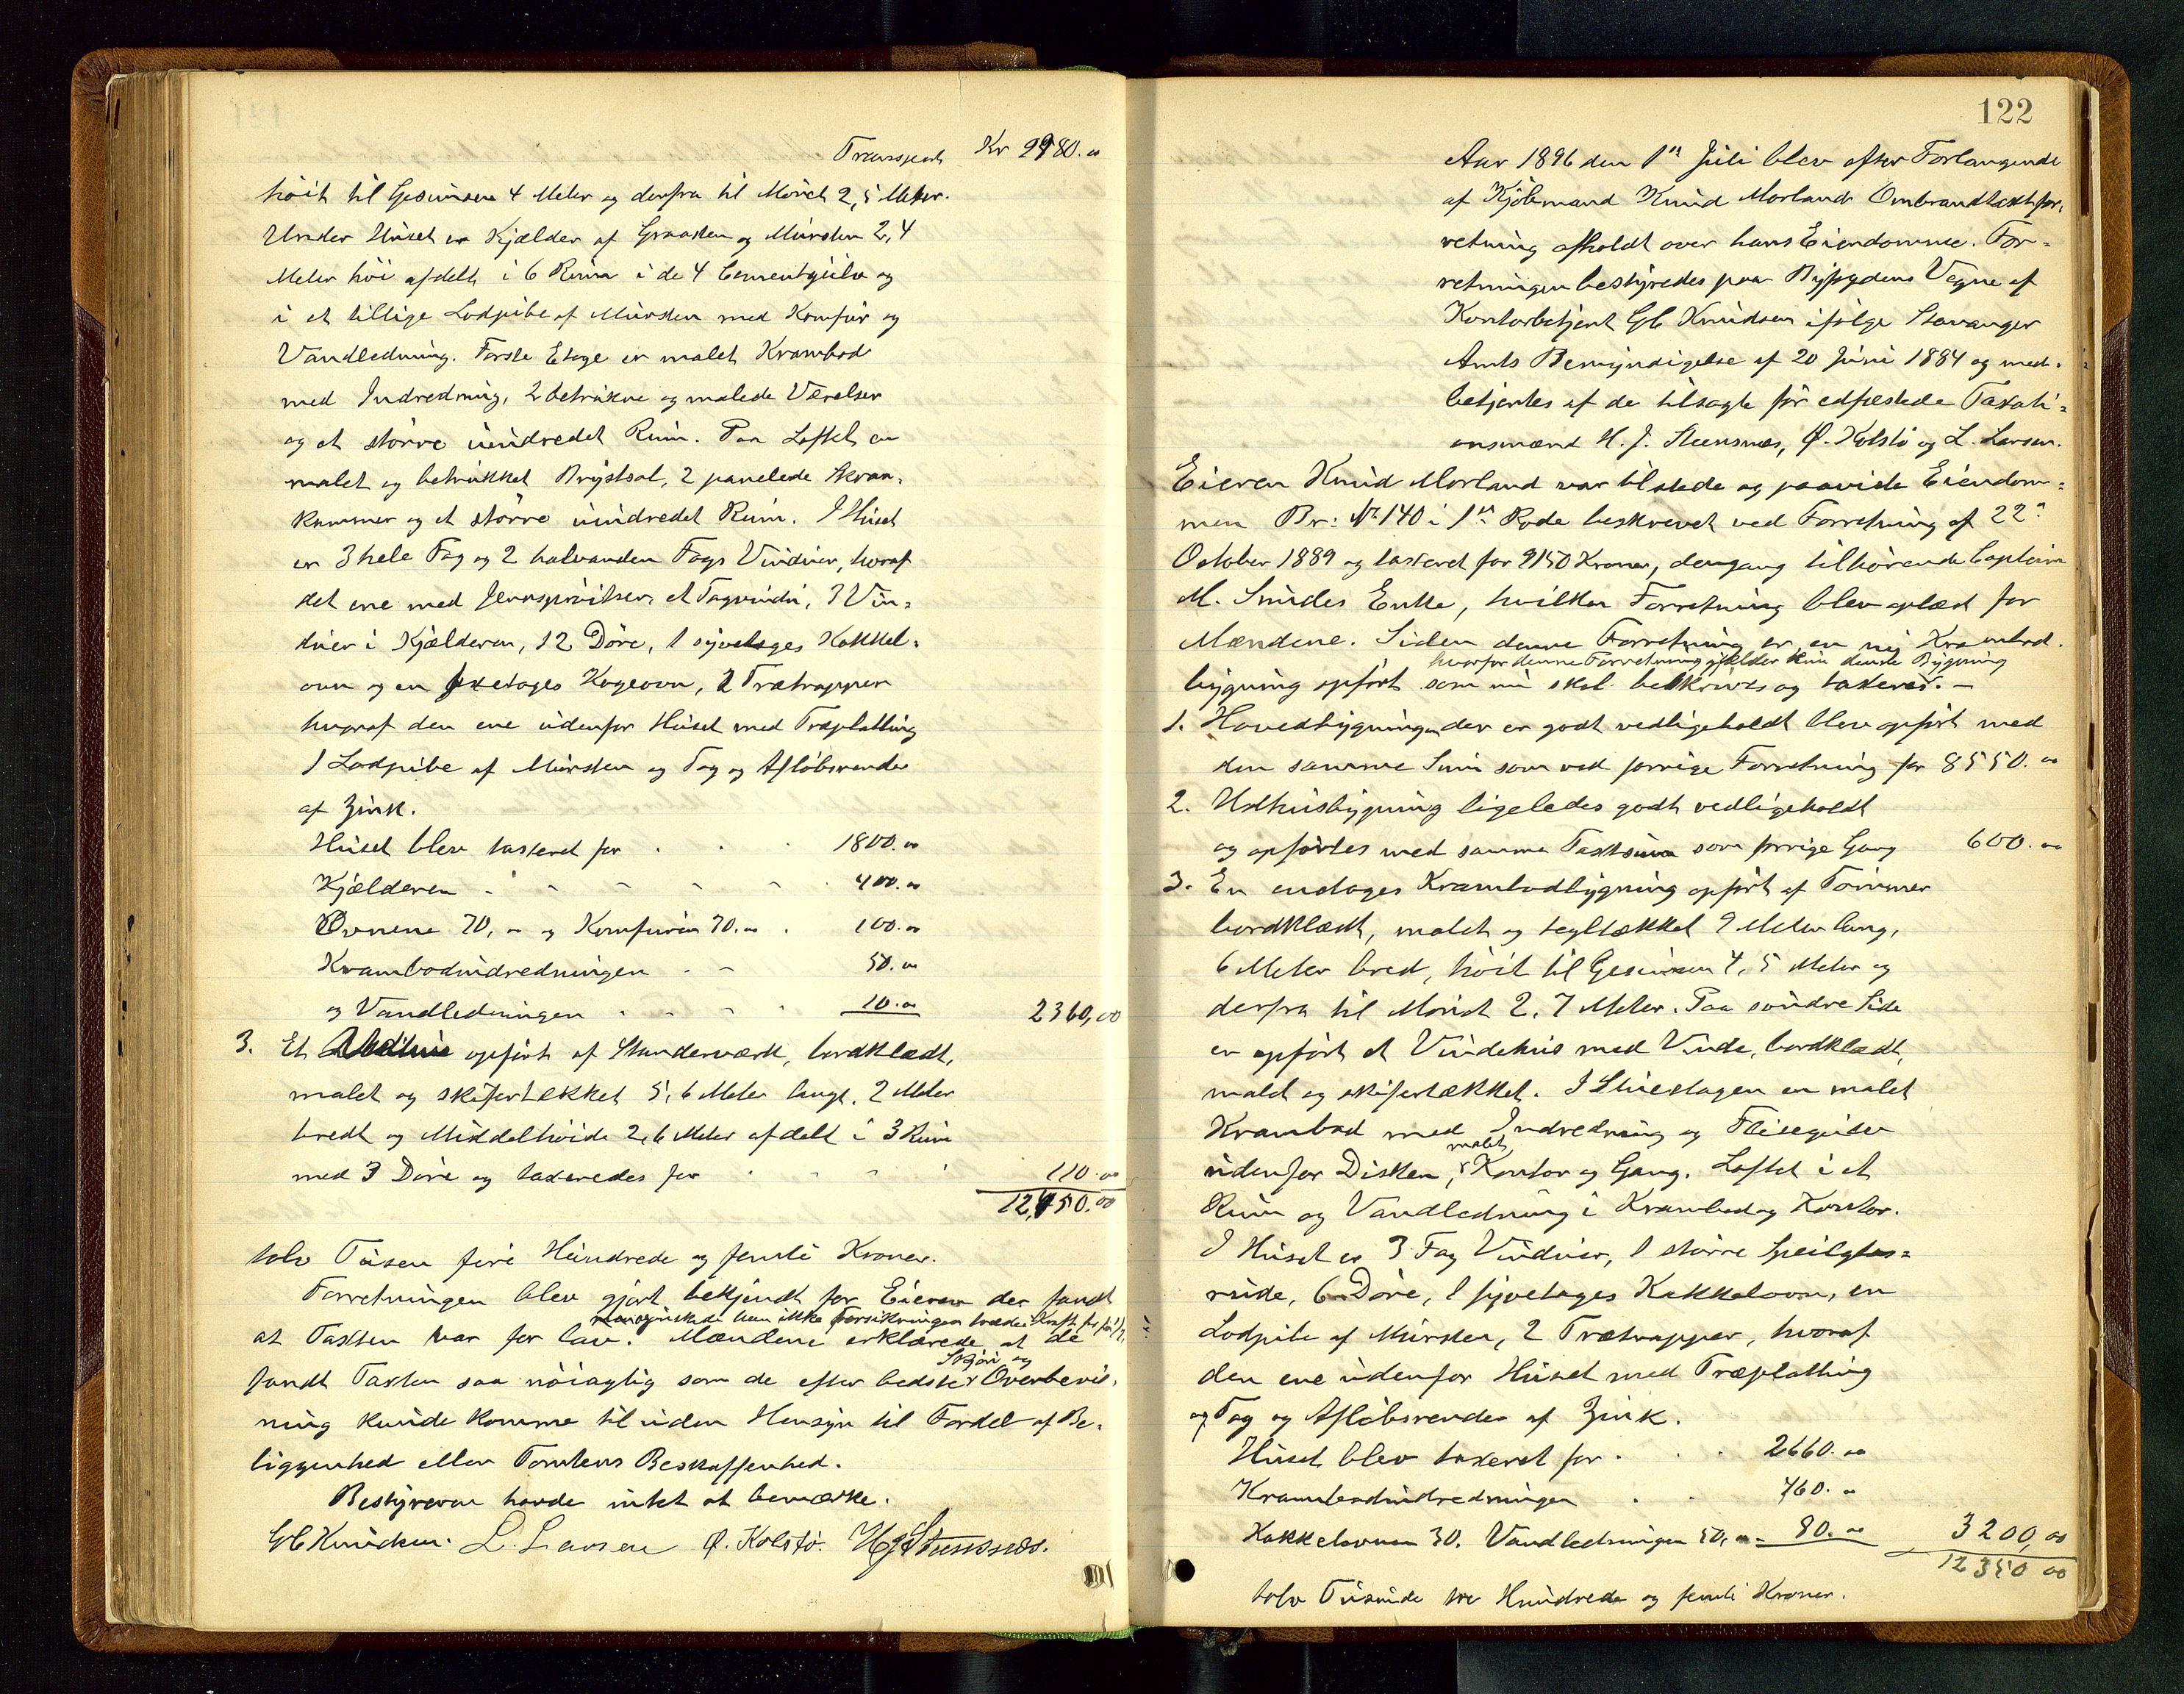 Transport Kr 9980.00
höit til Gesimsen 4 Meter og derfra til Mönet 2,5 Meter.
Under Huset er Kjælder af Graasten og Mursten 2,4
Meter höi afdelt i 6 Rum i de 4 Cementgulv og
i et tillige Lodpibe af Mursten med Komfur og
Vandledning. Förste Etage er malet Krambod
med Indredning, 2 betrukne og malede Værelser
og et större uindredet Rum. Paa Loftet en
malet og betrukket Brystsal, 2 panelede Skraa-
kammer og et större uindredet Rum. I Huset
er 3 hele Fag og 2 halvanden Fags Vinduer, hvoraf
det ene med Jernsprinkler, et Tagvindu, 3 Vin-
duer i Kjælderen, 12 Döre, 1 syvetages Kakkel-
ovn og en etages Kogeovn, 2 Trætrapper
hvoraf den ene udenfor Huset med Træplatting
1 Lodpibe af Mursten og Tag og Aflöbsrender
af Zink.
Huset blev taxeret for . . . 1800.00
Kjælderen - - - - - 400.00
Ovnene 70,00 og Komfuren 30.00 . 100.00
Krambodindredningen . - 50.00
og Vandledningen - - - . 10.00 2360,00
3. Et opfört af Standerværk, bordklædt,
malet og skifertækket 5,6 Meter langt, 2 Meter
bredt og Middelhöide 2,6 Meter afdelt i 3 Rum
med 3 Döre og taxeredes for . - - . 110.00
12,450.00
tolv Tusen fire Hundrede og femti Kroner.
Forretningen blev gjort bekjendt for Eieren der fandt
han ikke Forsikringen
at Taxten var for lav. Mændene erklærede at de
Skjön og
fandt Taxten saa nöiagtig som de efter bedste Overbevis-
ning kunde komme til uden Hensyn til Fordel af Be-
liggenhed eller Tomtens Beskaffenhed.
Bestyreren havde intet at bemærke.
Gb Knudsen. L. Larsen Ø. Kolstö. H J Steensnæs.
122
Aar 1896 den 1ste Juli blev efter Forlangende
af Kjöbmand Knud Morland Ombrandtaxtfor-
retning afholdt over hans Eiendomme. For-
retningen bestyredes paa Byfogdens Vegne af
Kontorbetjent Gb Knudsen ifölge Stavanger
Amts Bemyndigelse af 20 Juni 1884 og med-
betjentes af de tilsagte för edfæstede Taxati-
onsmænd H. J. Steensnæs, Ø. Kolstö og L. Larsen.
Eieren Knud Morland var tilstede og paaviste Eiendom-
men Br: No 140 i 1ste Rode beskrevet ved Forretning af 22de
October 1889 og taxeret for 9150 Kroner, dengang tilhörende Captein
M. Smides Enke, hvilken Forretning blev oplæst for
Mændene. Siden denne Forretning er en ny Krambod-
hvorfor denne Forretning gjælder kun denne Bygning
bygning opfört som nu skal beskrives og taxeres. -
1. Hovedbygningen der er godt vedligeholdt blev opfört med
den samme Sum som ved forrige Forretning for 8550.00
2. Udhusbygning ligeledes godt vedligeholdt
og opförtes med samme Taxtsum som forrige Gang 600.00
3. En enetages Krambodbygning opfört af Tömmer
bordklædt, malet og tegltækket 9 Meter lang,
6 Meter bred, höit til Gesimsen 4,5 Meter og
derfra til Mönet 2,7 Meter. Paa söndre Side
er opfört et Vindehus med Vinde, bordklædt,
malet og skifertækket. I Stueetagen en malet
Krambod med Indredning og Flisegulv
malet
udenfor Disken, Kontor og Gang. Loftet i et
Rum og Vandledning i Krambod og Kontor.
I Huset er 3 Fag Vinduer, 1 större Speilglas-
rude, 6 Döre, 1 syvetages Kakkelovn, en
Lodpibe af Mursten, 2 Trætrapper, hvoraf
den ene udenfor Huset med Træplatting
og Tag og Aflöbsrender af Zink.
Huset blev taxeret for . . . 2660.00
Krambodindredningen . . 460.00
Kakkelovnen 30. Vandledningen 50,00 80.00 3200,00
12350 00
tolv Tusinde tre Hundrede og femti Kroner.